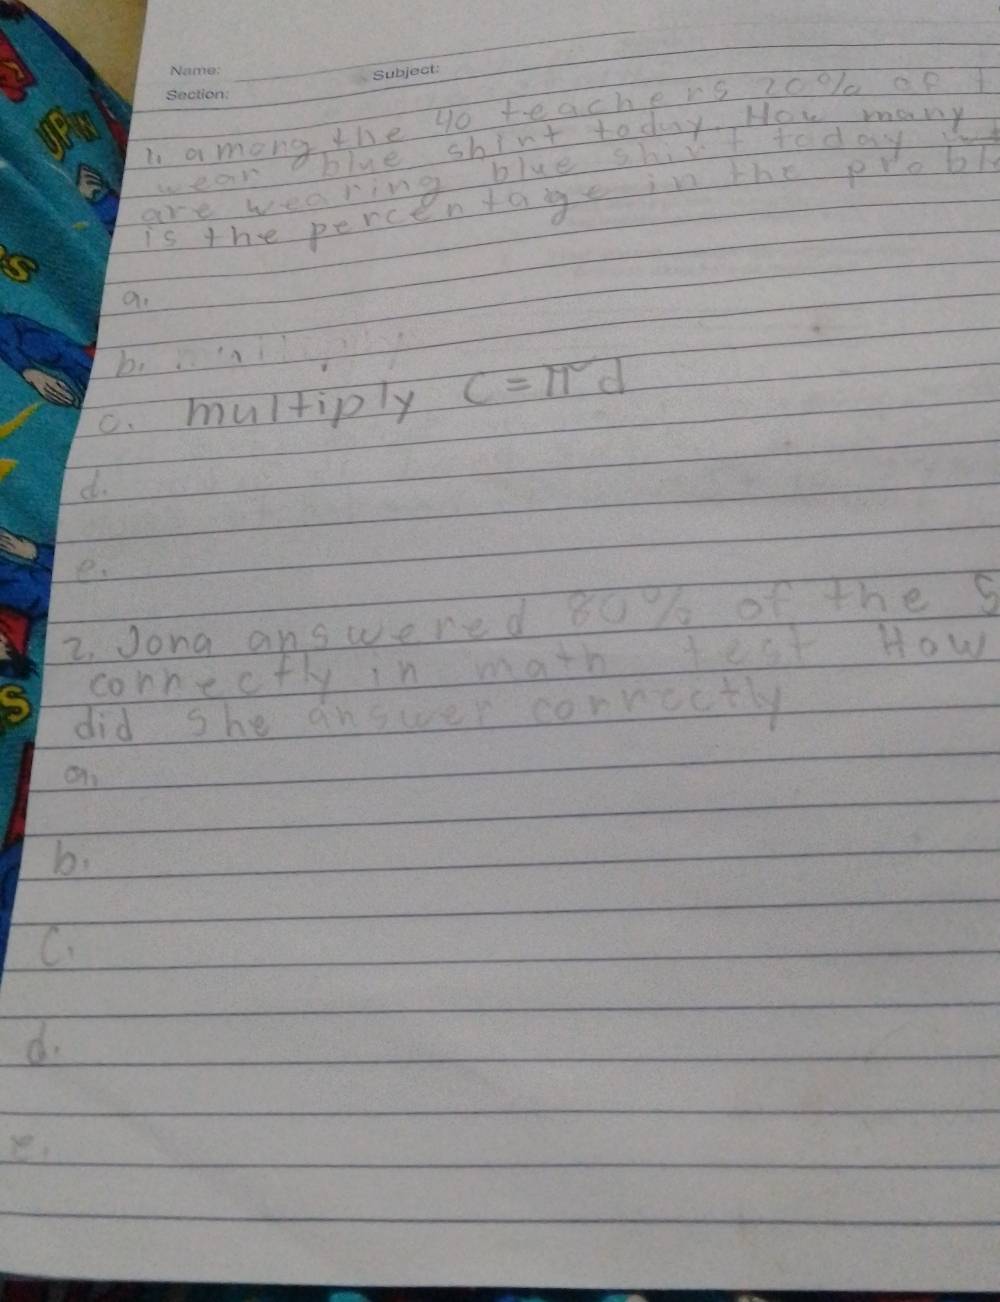 Name:
Subject:
Section:
1. among the 40 teachers 20% of
wear blue shirt today. How many
are wearing blue shirt today
is the percentage in the
a.
b.
c. multiply C = π d
d.
e.
2. Jona answered 80% of the
correctly in math test How
did she answer correctly
a.
b.
C.
d.
e.